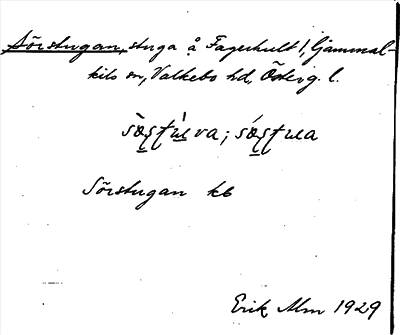 Sörstugan, stuga å Fagerhult 1, Gammal-
kils sn, Valkebo hd, Österg. l.
Sörstugan kb
Erik Alm 1929